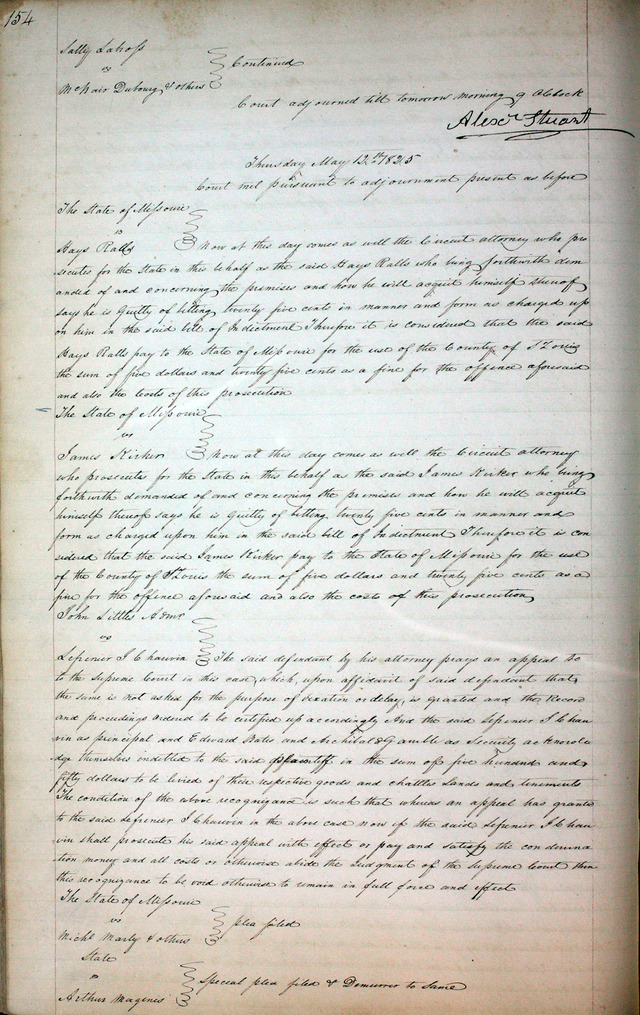 154
Sally Lahoss
vs
McNair Dubourg & others } Continued
Court adjourned till tomorrow morning 9 Oclock
Alexr Stuart
Thursday May 12th 1825
Court met pursuant to adjournment present as before
The State of Missouri
vs
Hays Ralls } Now at this day comes as well the Circuit attorney who pro
secutes for the State in this behalf as the said Hays Ralls who being forthwith dem
anded of and concerning the premises and how he will acquit himself thereof
says he is Guilty of betting twenty five cents in manner and form as charged up
on him in the said bill of Indictment Therefore it is considered that the said
Hays Ralls pay to the State of Missouri for the use of the County of St Louis
the sum of five dollars and twenty five cents as a fine for the offence aforesaid
and also the Costs of this prosecution
The State of Missouri
vs
James Kirker } Now at this day comes as well the Circuit attorney
who prosecutes for the State in this behalf as the said James Kirker who being
forthwith demanded of and concerning the premises and how he will acquit
himself thereof says he is Guilty of betting twenty five cents in manner and
form as charged upon him in the said bill of Indictment Therefore it is con
sidered that the said James Kirker pay to the State of Missouri for the use
of the County of St Louis the sum of five dollars and twenty five cents as a
fine for the offence aforesaid and also the costs of this prosecution
John Littles Admr
vs
Lefrenier J Chauvin } The said defendant by his attorney prays an appeal to
to the Supreme Court in this case, which, upon affidavit of said defendant that
the same is not asked for the purpose of vexation or delay, is granted and the Record
and proceedings ordered to be certified up accordingly And the said Lefrenier J Chau
vin as principal and Edward Bates and Archibald Gamble as Security acknowle
dge themselves indebted to the said plaintiff in the sum of five hundred and
fifty dollars to be levied of their respective goods and chattles Lands and tenements
The condition of the above recognizance is such that whereas an appeal has granted
to the said Lefrenier J Chauvin in the above case now if the said Lefrenier J Chau
vin shall prosecute his said appeal with effect or pay and satisfy the condemna
tion money and all costs or otherwise abide the Judgment of the Supreme Court then
this recognizance to be void otherwise to remain in full force and effect
The State of Missouri
vs
Michl Marly & others } plea filed
State
vs
Arthur Magenis } Special plea filed & Demurrer to Same